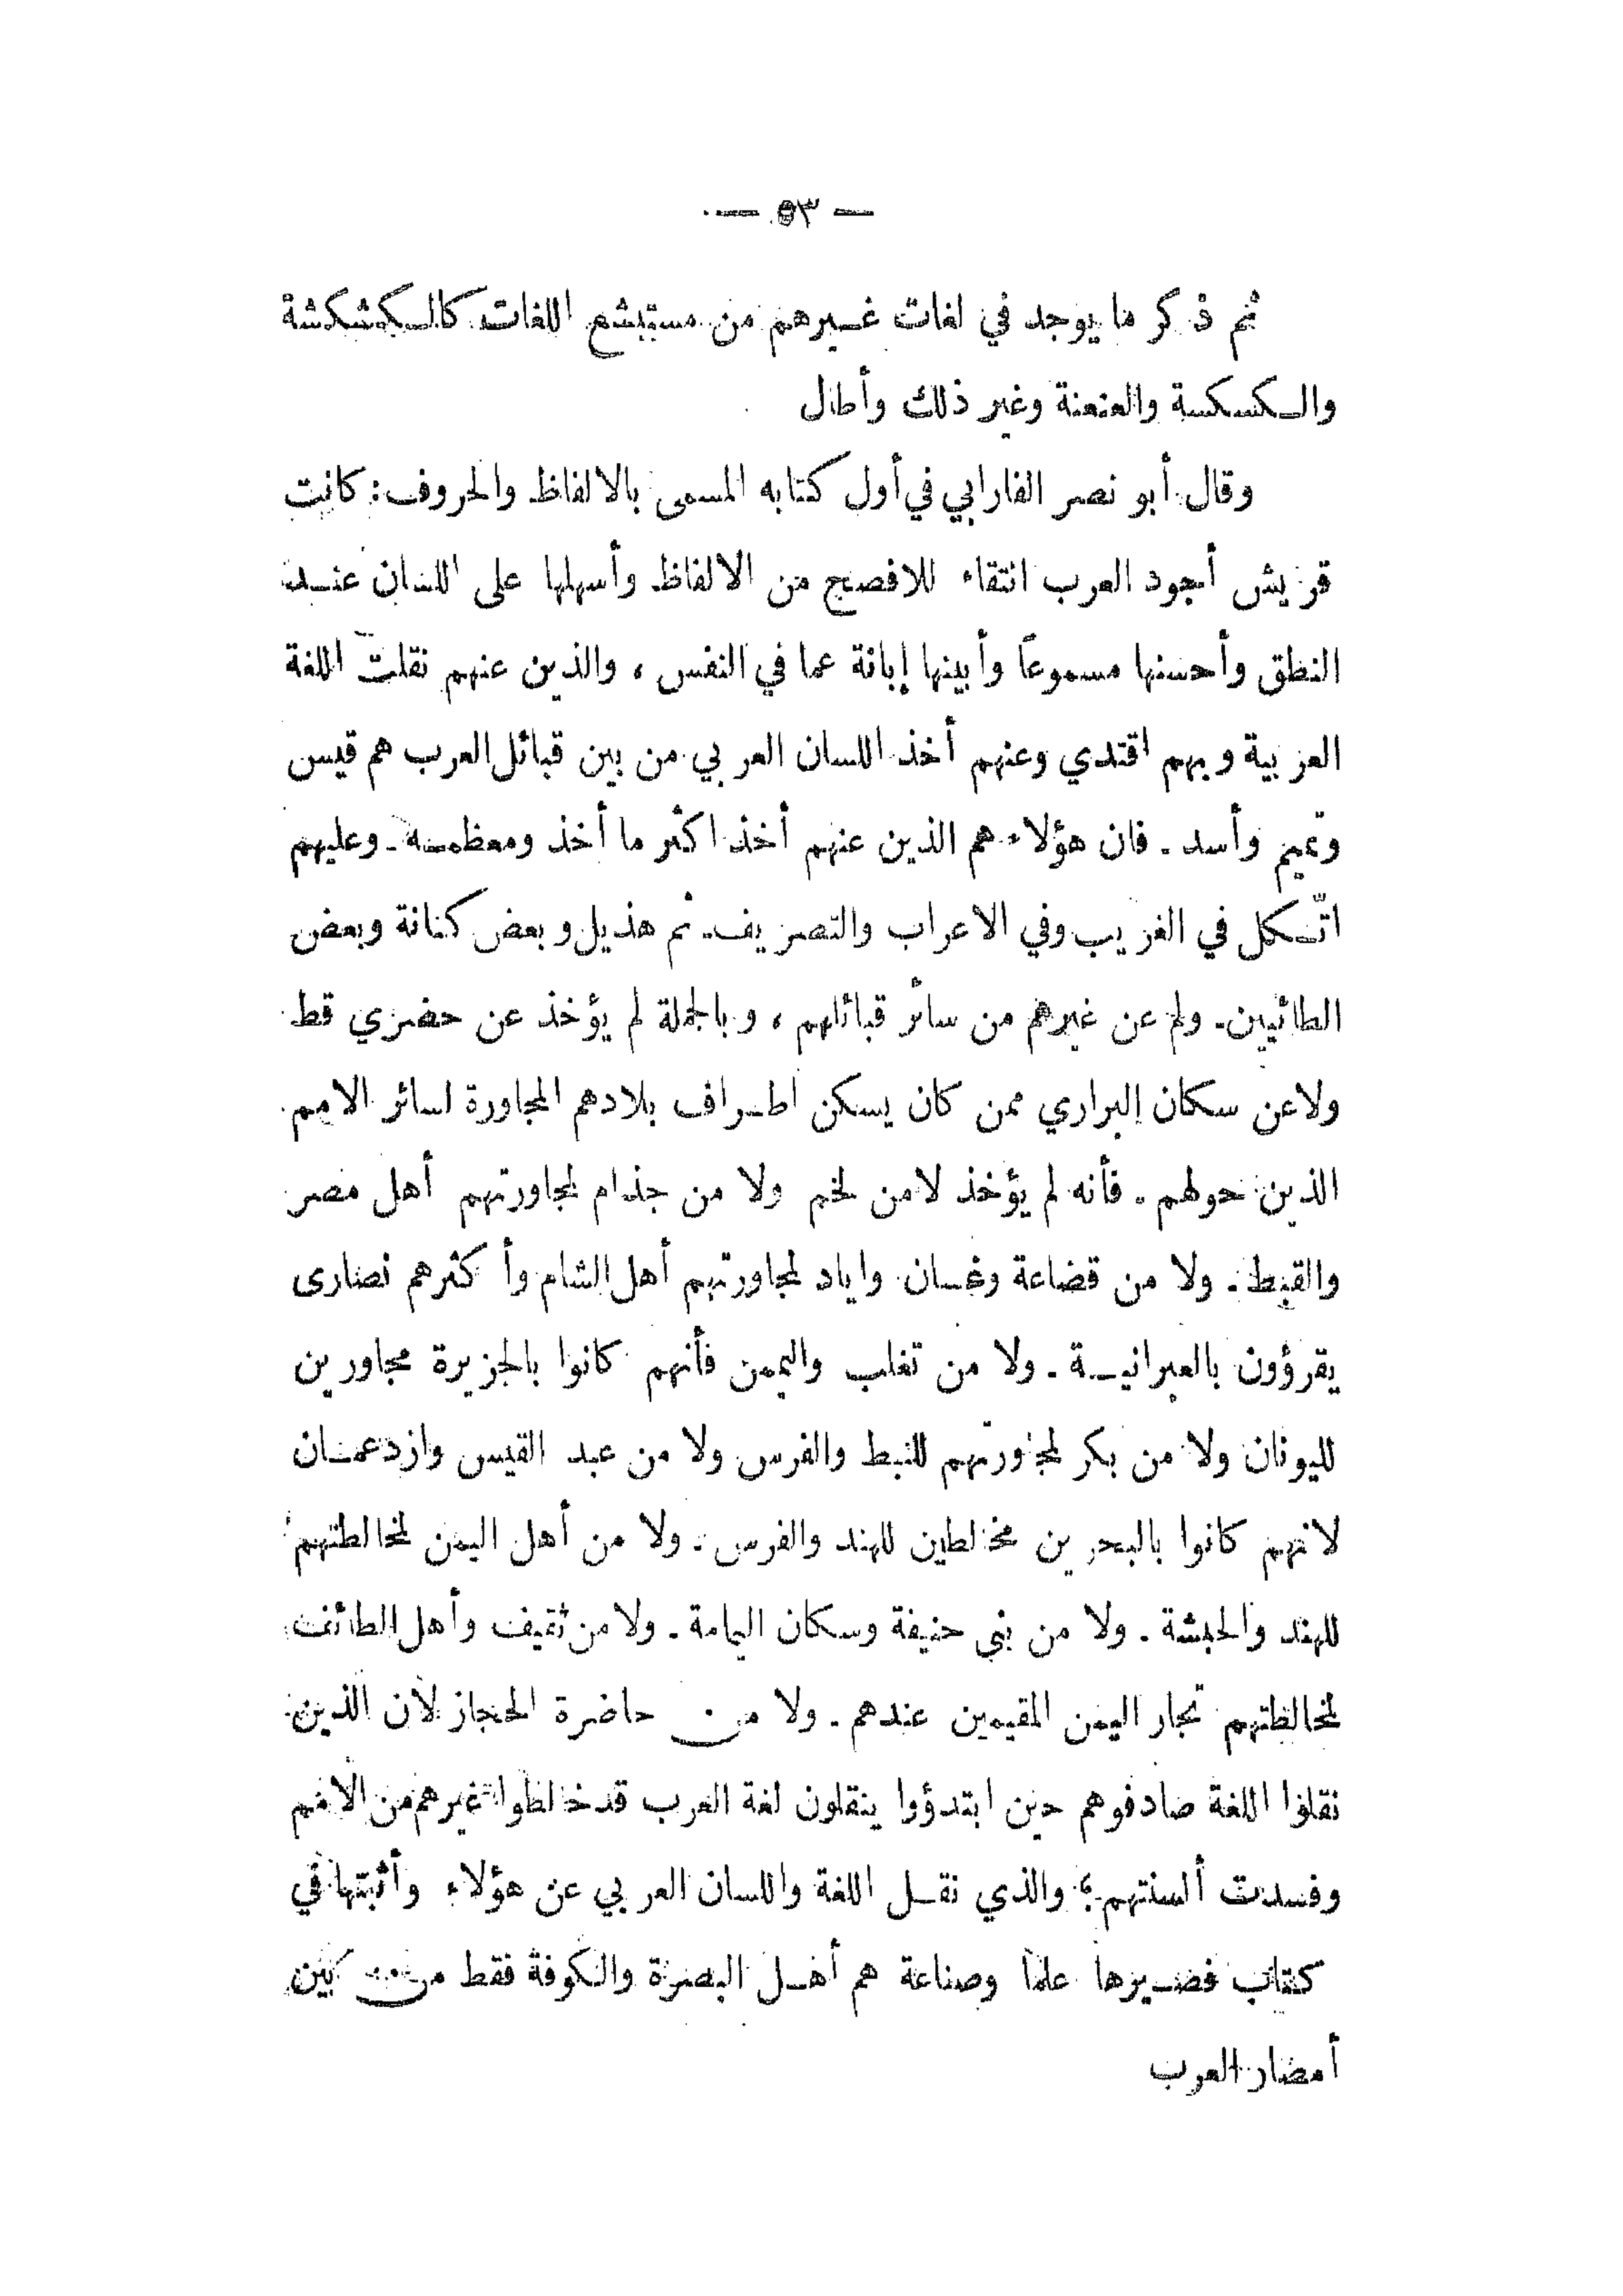 — ٥٣ —
ثم ذكر ما يوجد في لغات غيرهم من مستبشع اللغات كالكشكشة
والكسكسة والعنعنة وغير ذلك وأطال
وقال أبو نصر الفارابي في أول كتابه المسمى بالالفاظ والحروف : كانت
قريش أجود العرب انتقاء للافصح من الالفاظ وأسهلها على اللسان عند
النطق وأحسنها مسموعاً وأبينها إبانة عما في النفس ، والذين عنهم نقلت اللغة
العربية وبهم اقتدي وعنهم أخذ اللسان العربي من بين قبائل العرب هم قيس
وتميم وأسد . فان هؤلاء هم الذين عنهم أخذ اكثر ما أخذ ومعظمه . وعليهم
اتّكل في الغريب وفي الاعراب والتصريف . ثم هذيل وبعض كنانة وبعض
الطائيين . ولم عن غيرهم من سائر قبائلهم ، وبالجملة لم يؤخذ عن حضري قط
ولا عن سكان البراري ممن كان يسكن اطراف بلادهم المجاورة لسائر الامم
الذين حولهم . فأنه لم يؤخذ لا من لخم ولا من جذام لمجاورتهم أهل مصر
والقبط . ولا من قضاعة وغسان واياد لمجاورتهم أهل الشام وأكثرهم نصارى
يقرؤون بالعبرانية . ولا من تغلب واليمن فأنهم كانوا بالجزيرة مجاورين
لليونان ولا من بكر لمجاورتهم للنبط والفرس ولا من عبد القيس وازد عمان
لانهم كانوا بالبحرين مخالطين للهند والفرس . ولا من أهل اليمن لمخالطتهم
للهند والحبشة . ولا من بني حنيفة وسكان اليمامة . ولا من ثقيف وأهل الطائف
لمخالطتهم تجار اليمن المقيمين عندهم . ولا من حاضرة الحجاز لأن الذين
نقلوا اللغة صادفوهم حين ابتدؤوا ينقلون لغة العرب قد خالطوا غيرهم من الامم
وفسدت ألسنتهم ؛ والذي نقل اللغة واللسان العربي عن هؤلاء وأثبتها في
كتاب فصيرها علما وصناعة هم أهل البصرة والكوفة فقط من بين
أمصار العرب